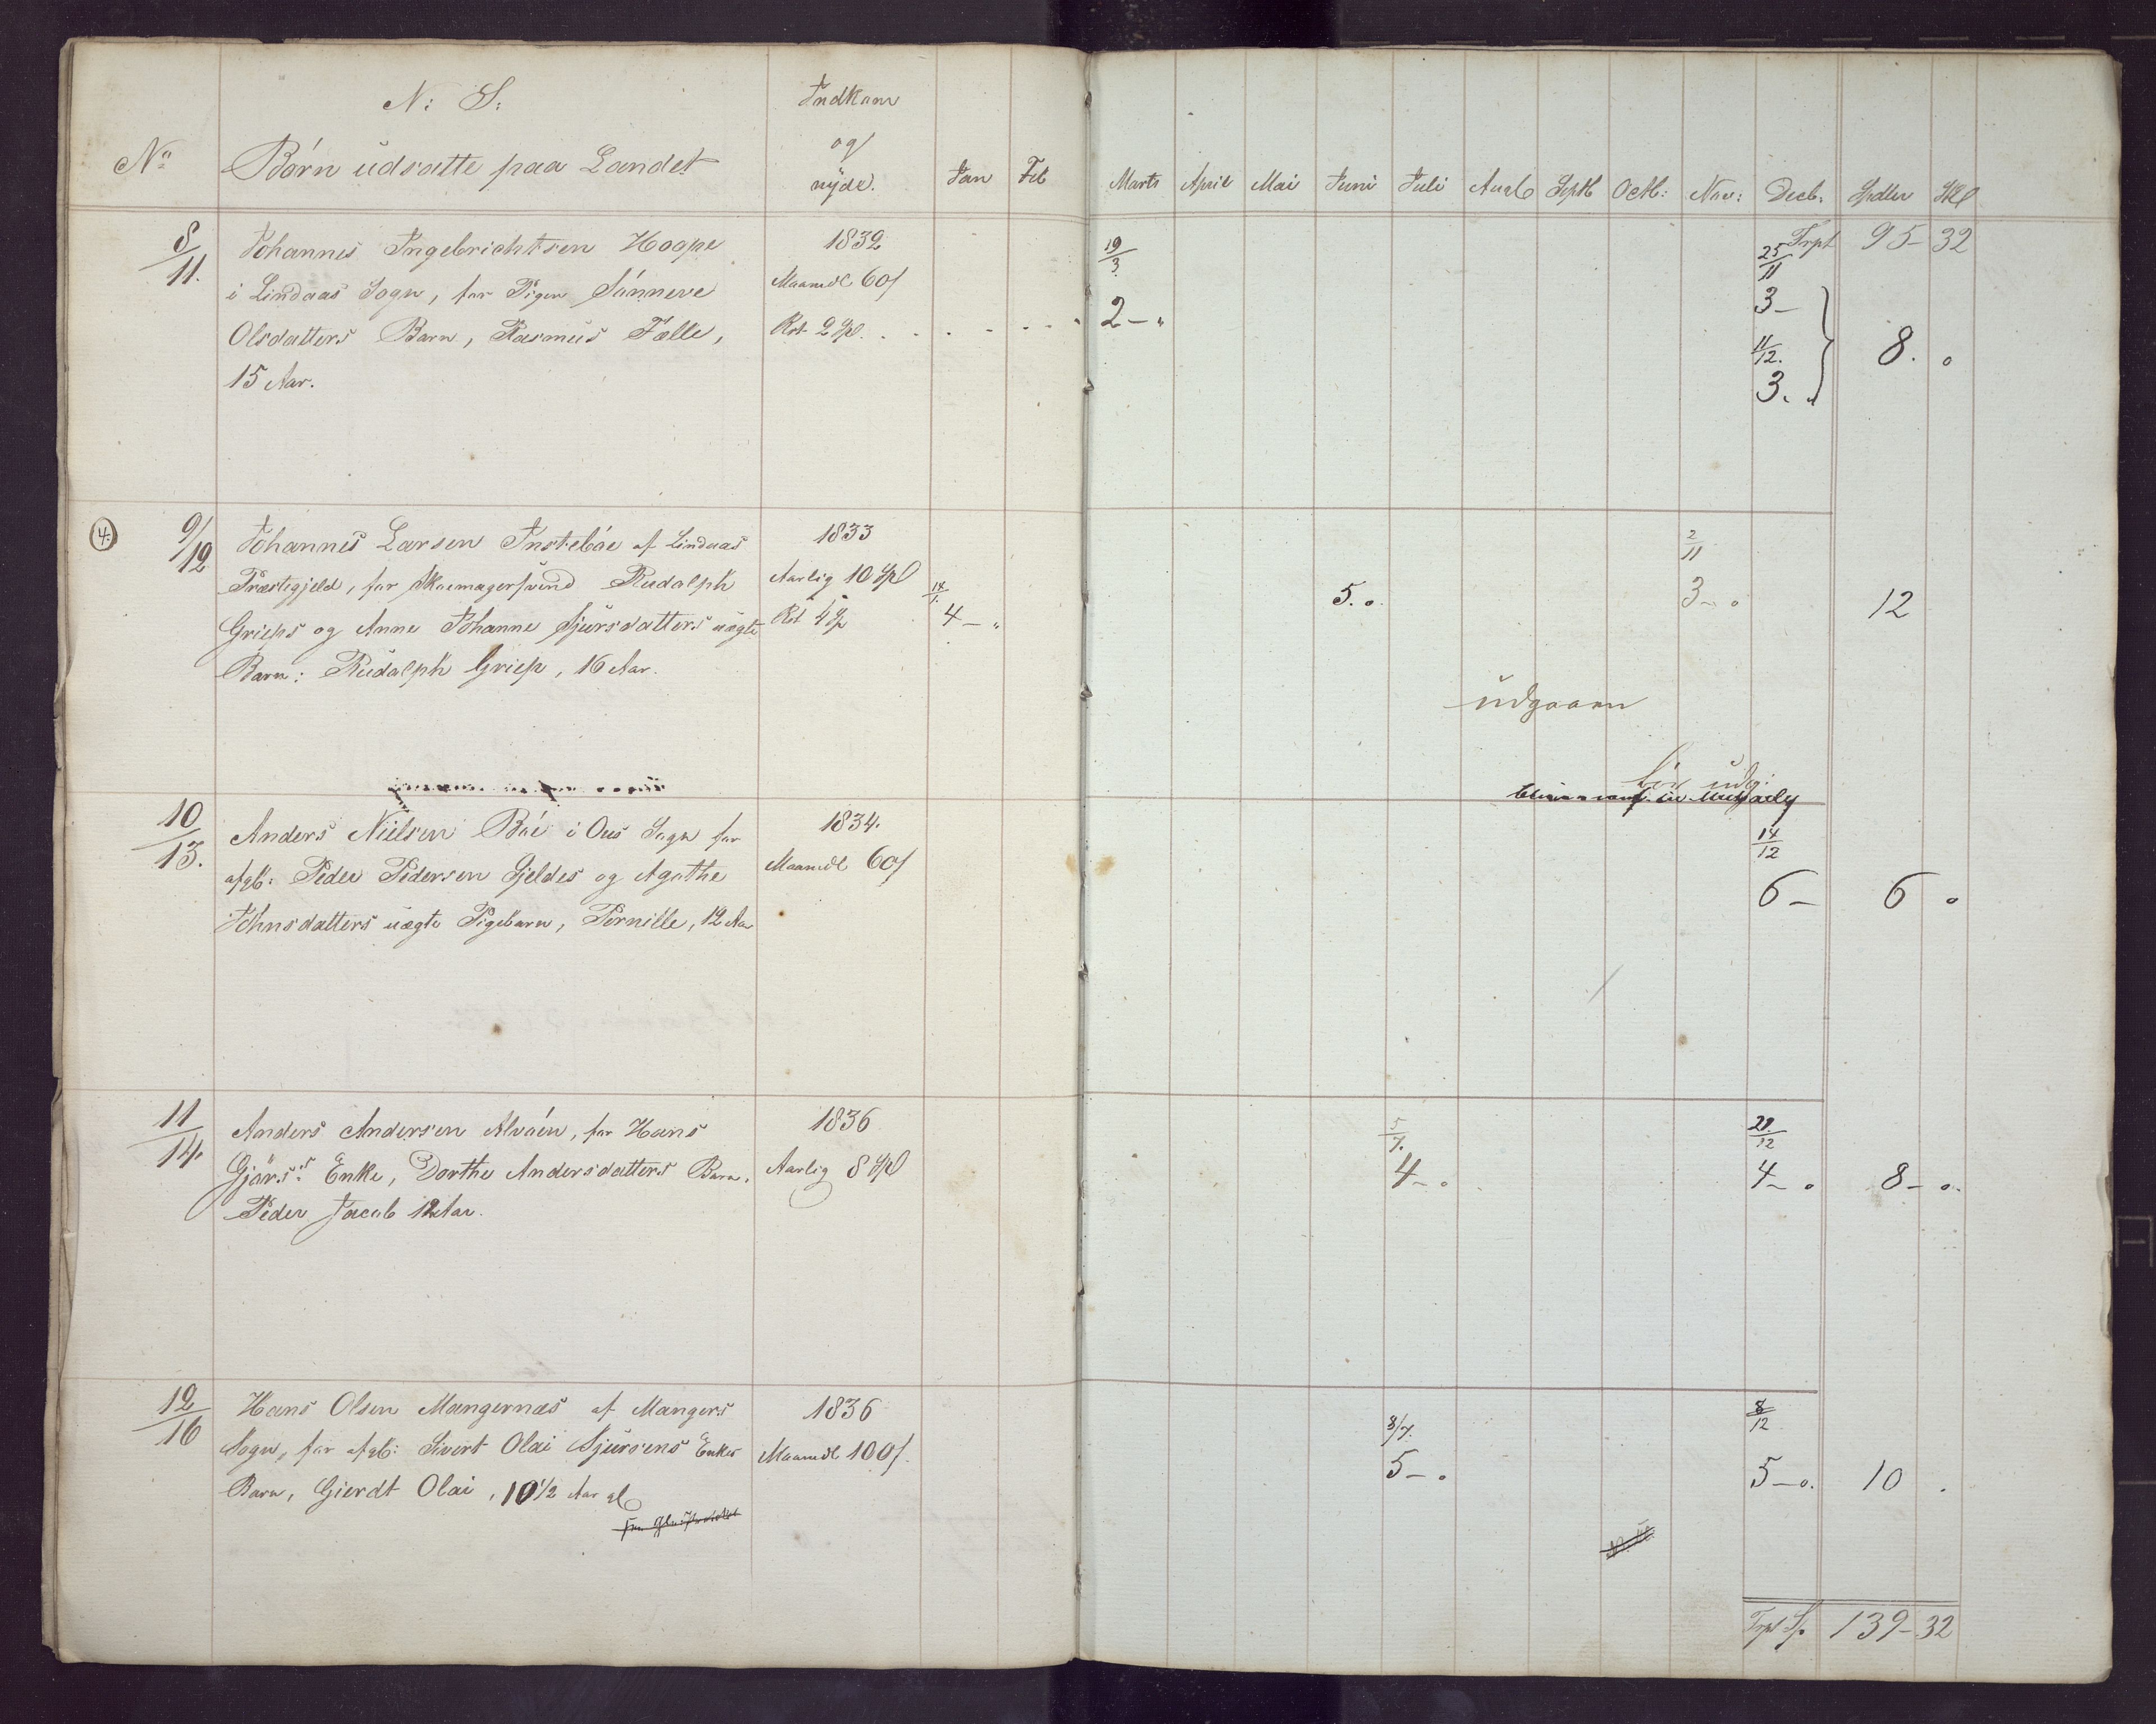 N: S:
Indkom
og
nÿde.
No
Börn üdsatte paa Landet
Jan
Feb
Marts
April
Mai
Juni
Juli
Aug
Septb
Octb:
Nov:
Decb.
Spdlr
Skl
8/11.
Johannes Ingebrichtsen Hogpe
i Lindaas Sogn, for Pigen Sönneve
Olsdatters Barn, Rasmüs Falle,
15 Aar.
1832
Maanedl 60/
Rst 2 Spl
19/3
2 — "
Trpt 95 - 32
25/11
3 —
11/12.
3. "
8. o
4.
9/12
Johannes Larsen Insteböe af Lindaas
Præstegjeld, for Skoemagersvend Rüdolph
Grieps og Anne Johanne Sjürsdatters üægte
Barn: Rüdolph Griep, 16 Aar.
1833
Aarlig 10 Spl
Rst 4 Sp
4 — "
5. o.
2/11
3 — o
12
üdgaaen
10/13.
Anders Nielsen Böe i Ous Sogn for
afgb: Peder Pedersen Gjeldes og Agathe
Johnsdatters üægte Pigebarn, Pernille, 12 Aar
1834.
Maanedl 60/
14/12
6 —
6 o
11/14.
Anders Andersen Alvöen, for Hans
Gjörs:s Enke, Dorthe Andersdatters Barn.
Peder Jacob 12 Aar.
1836
Aarlig 8 Spl
5/7.
4 — o
21./12
4 — o
8 — o.
12/16
Hans Olsen Mangernæs af Mangers
Sogn, for afgb: Sivert Olai Sjürsens Enkes
Barn, Gierdt Olai, 10 1/2 Aar gl
1836
Maanedl 100/.
8/7.
5 — o
8/12
5 — o.
10 .
Trpt Sp. 139 - 32